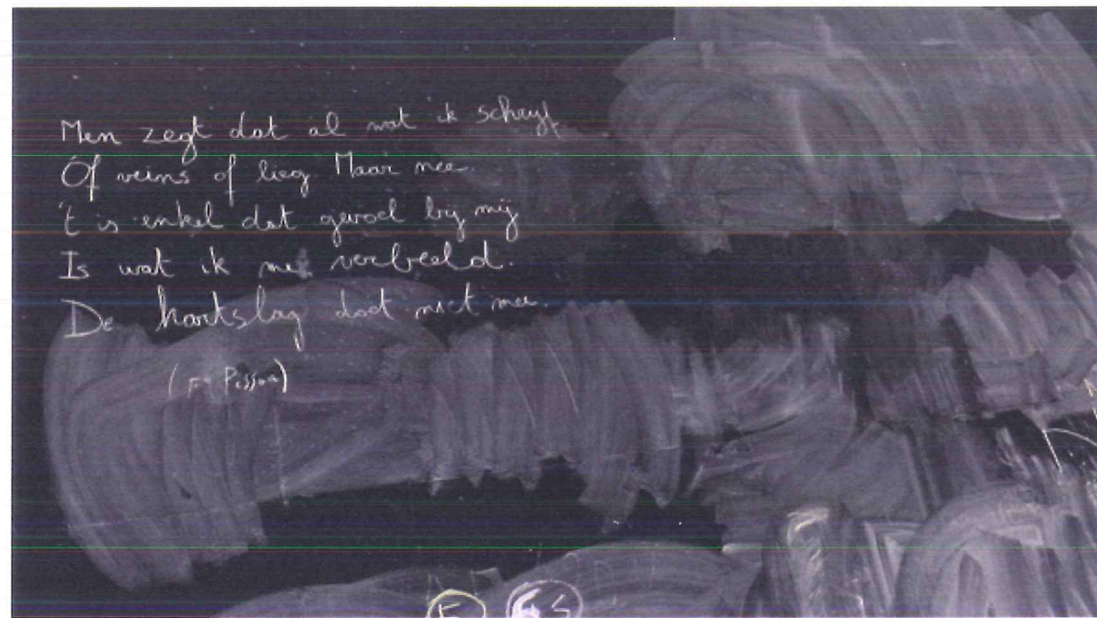 Men zegt dat al wat ik schrijf
Of veins of lieg Maar nee.
't is enkel dat gevoel bij mij
Is wat ik me verbeeld.
De hartslag doet niet mee.
(F. Pessoa)